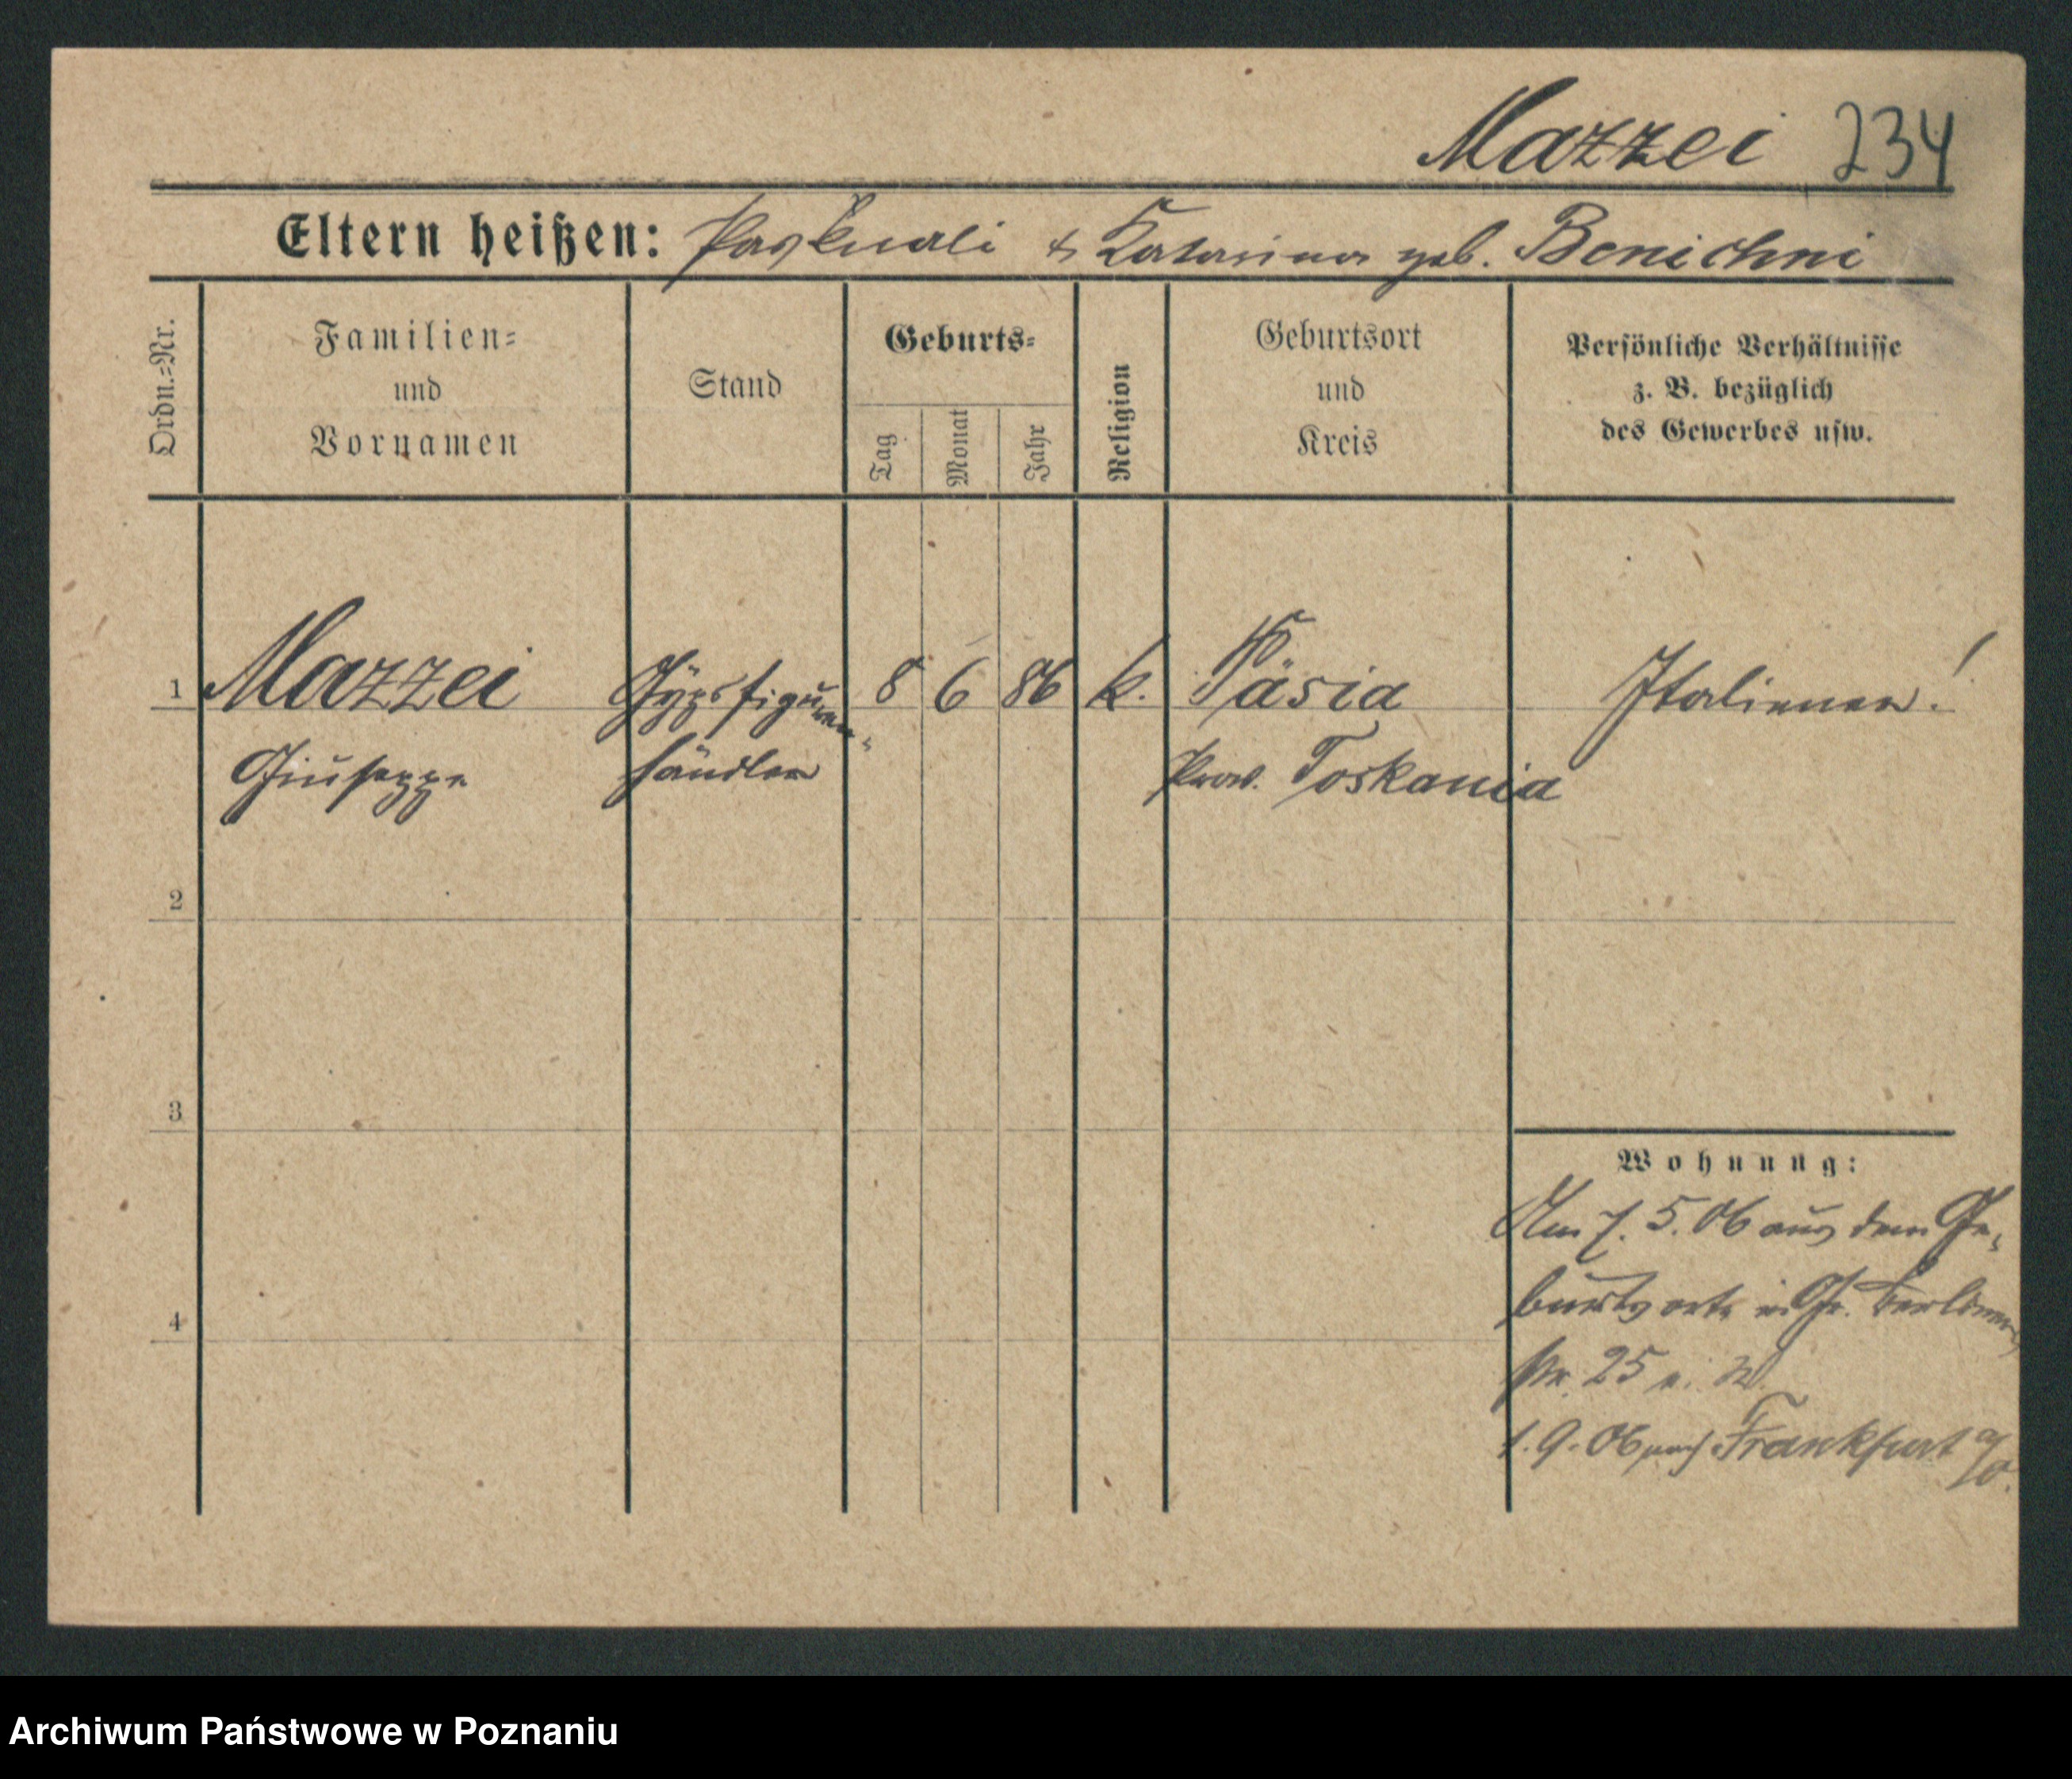 Mazzei 234
Eltern heißen: Paskuali & Katarina geb. Benichni
Ordn.-Nr.
Familien-
und
Vornamen
Stand
Geburts-
Tag
Monat
Jahr
Religion
Geburtsort
und
Kreis
Persönliche Verhältnisse
z. B. bezüglich
des Gewerbes usw.
1 Mazzei Gypsfiguren- 8 6 86 k. Päsia Italiener!
Giuseppe händler Prov. Toskania
2
3
Wohnung:
Am 7. 5. 06 aus dem Ge-
burtsorte Gr. Berliner
4
str. 25
1. 9. 06 nach Frankfurt a/O.
Archiwum Państwowe w Poznaniu